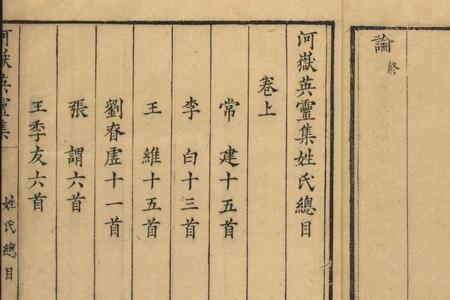 論終
河嶽英靈集姓氏總目
卷上
常建十五首
李白十三首
王維十五首
劉眘虛十一首
張謂六首
王季友六首
河嶽英靈集
姓氏總目